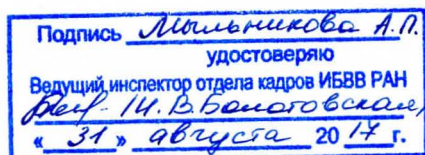 Подпись Мыльникова А.П.
удостоверяю
Ведущий инспектор отдела кадров ИБВВ РАН
Болотовская
« 31 » августа 20 17 г.